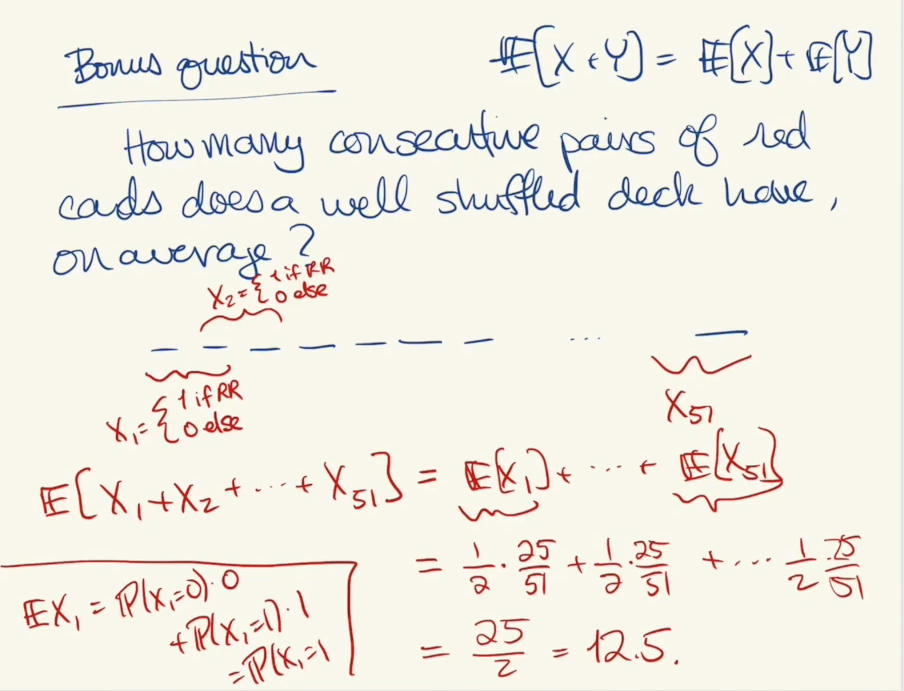 Bonus question
𝔼[X+Y] = 𝔼[X]+𝔼[Y]
How many consecutive pairs of red
cards does a well shuffled deck have,
on average?
X₂= { 1 if RR
0 else
...
X₁= { 1 if RR
0 else
X₅₁
𝔼[X₁+X₂+...+X₅₁] = 𝔼[X₁]+ ... + 𝔼[X₅₁]
= 1/2 · 25/51 + 1/2 · 25/51 + ... 1/2 · 25/51
= 25/2 = 12.5.
𝔼X₁ = ℙ(X₁=0)·0
+ℙ(X₁=1)·1
=ℙ(X₁=1